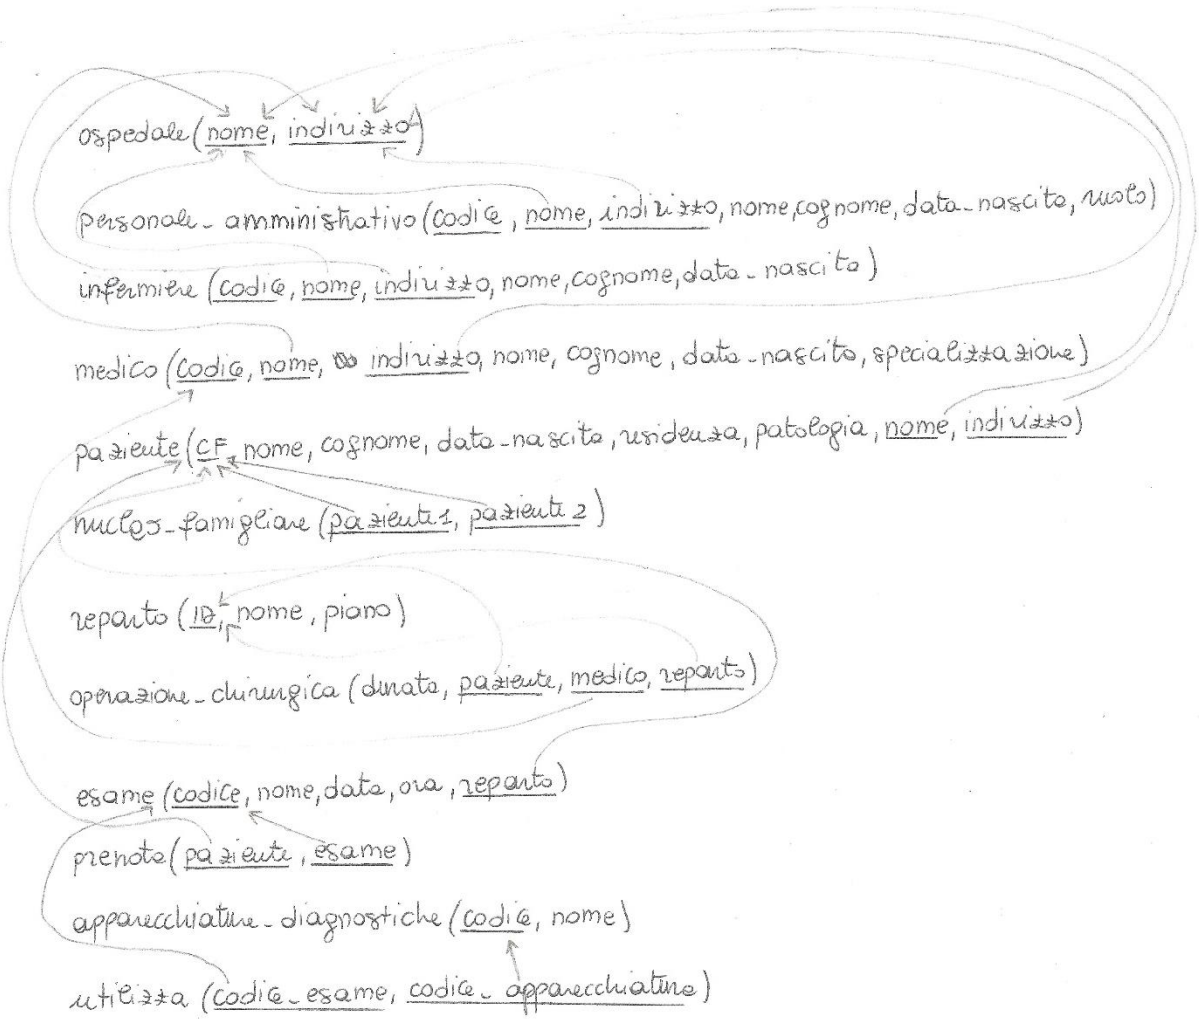 ospedale (nome, indirizzo)
personale_amministrativo (codice, nome, indirizzo, nome, cognome, data_nascita, ruolo)
infermiere (codice, nome, indirizzo, nome, cognome, data_nascita)
medico (codice, nome, indirizzo, nome, cognome, data_nascita, specializzazione)
paziente (CF, nome, cognome, data_nascita, residenza, patologia, nome, indirizzo)
nucleo_famigliare (paziente1, paziente2)
reparto (ID, nome, piano)
operazione_chirurgica (durata, paziente, medico, reparto)
esame (codice, nome, data, ora, reparto)
prenota (paziente, esame)
apparecchiature_diagnostiche (codice, nome)
utilizza (codice_esame, codice_apparecchiatura)